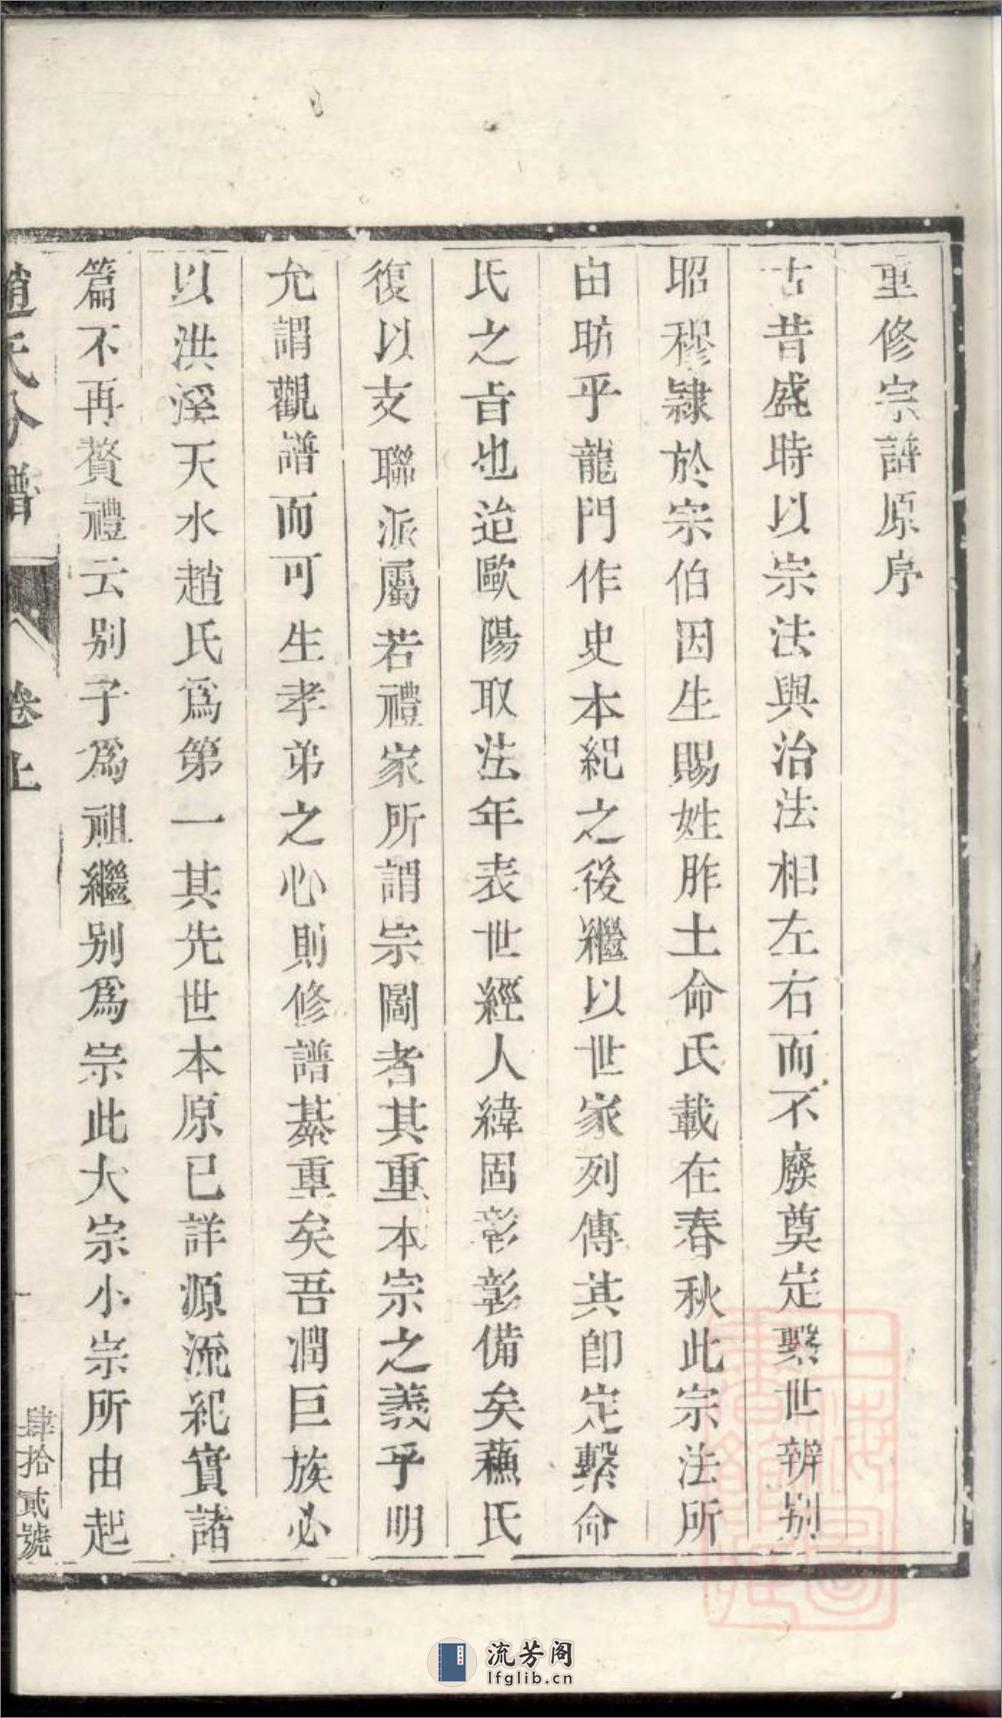 重修宗譜原序
古昔盛時以宗法與治法相左右而不廢奠定繫世辨别
昭穆隷於宗伯因生賜姓胙土命氏載在春秋此宗法所
由昉乎龍門作史本紀之後繼以世家列傳其卽定繫命
氏之㫖也迨歐陽取法年表世經人緯固彰彰備矣蘓氏
復以支聯派屬若禮家所謂宗圖者其重本宗之義乎明
允謂觀譜而可生孝弟之心則修譜綦重矣吾潤巨族必
以洪溪天水趙氏爲第一其先世本原已詳源流紀實諸
篇不再贅禮云别子爲祖繼别爲宗此大宗小宗所由起
趙氏分譜
卷上
肆拾貳號
流芳阁
lfglib.cn